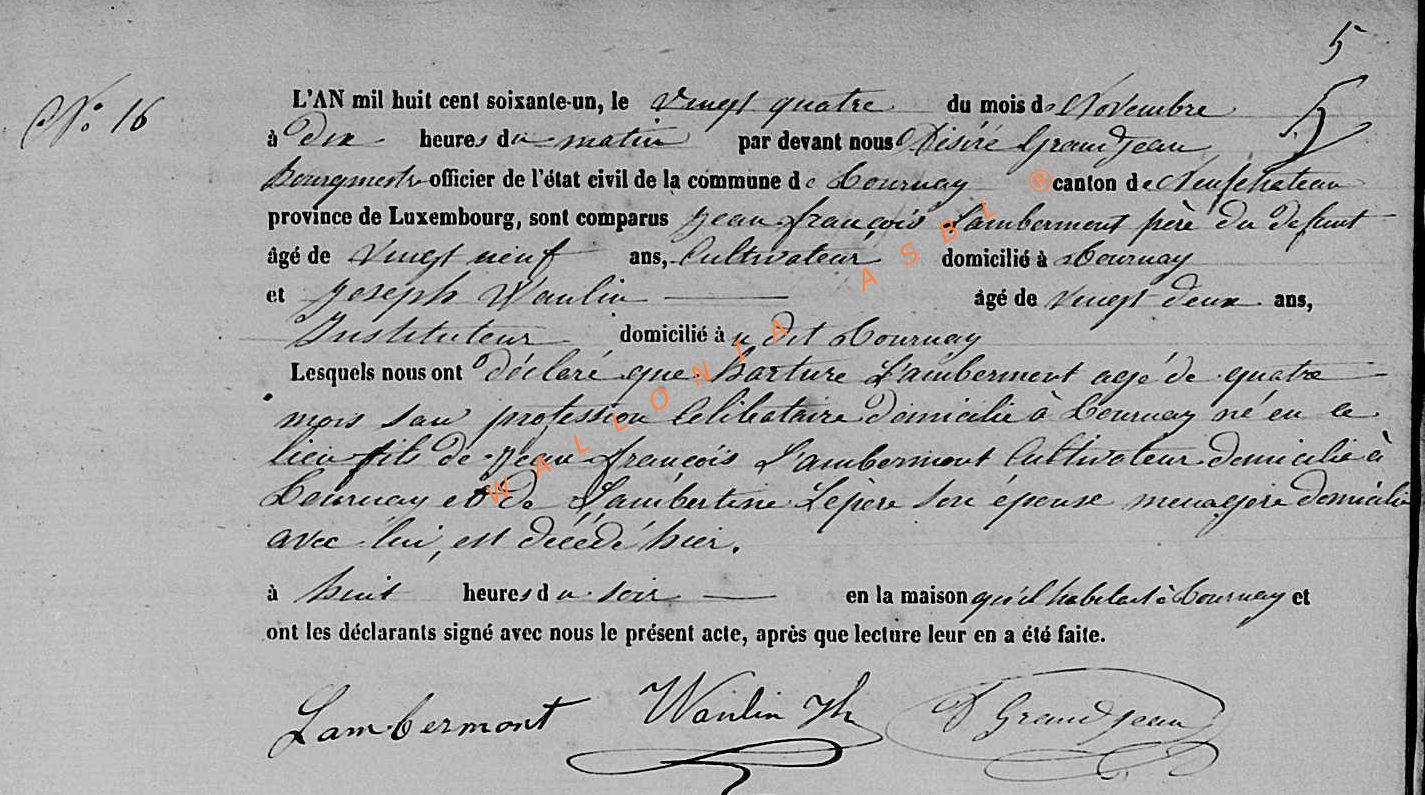 5
5
N° 16
L'AN mil huit cent soixante-un, le Vingt quatre du mois de Novembre
à dix heures du matin par devant nous Désiré Grandjean
Bourgmestre officier de l'état civil de la commune de Tournay canton de Neufchateau
province de Luxembourg, sont comparus Jean françois Lambermont père du defunt
âgé de Vingt neuf ans, Cultivateur domicilié à Tournay
et Joseph Waulin âgé de Vingt deux ans,
Instituteur domicilié à u dit Tournay
Lesquels nous ont déclaré que harture Lambermont agé de quatre
mois san profession Celibataire domicilie à Tournay né en ce
lieu fils de Jean françois Lambermont Cultivateur domicilie à
Tournay et de Lambertine Lepère son épouse menagère domicilie
avec lui, est décédé hier.
à huit heures du soir en la maison qu'il habitait à Tournay et
ont les déclarants signé avec nous le présent acte, après que lecture leur en a été faite.
Lambermont Waulin Jh D Grandjean
WALLONIA ASBL ®